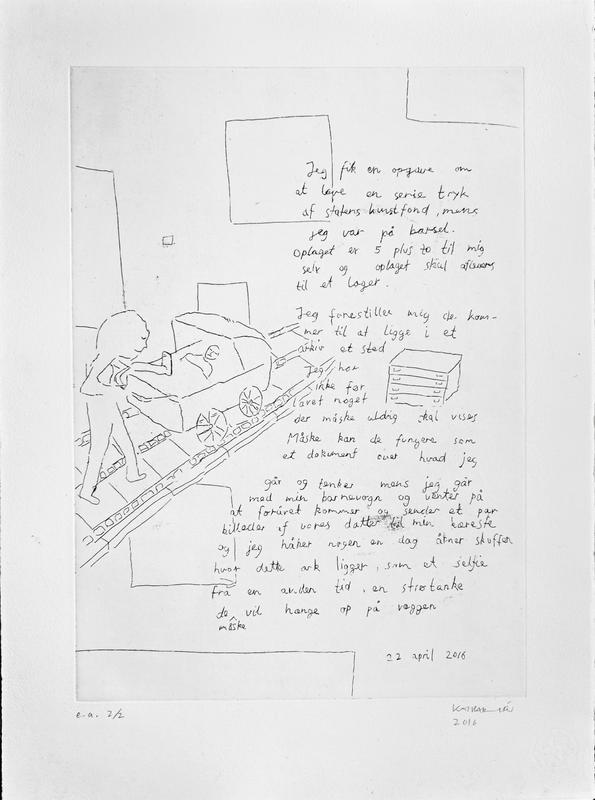 Jeg fik en opgave om
at lave en serie tryk
af statens kunstfond, mens
jeg var på barsel.
Oplaget er 5 plus to til mig
selv og oplaget skal afleveres
til et lager.
Jeg forestiller mig de kom-
mer til at ligge i et
arkiv et sted
Jeg har
ikke før
lavet noget
der måske aldrig skal vises
Måske kan de fungere som
et dokument over hvad jeg
går og tænker mens jeg går
med min barnevogn og venter på
at foråret kommer og sender et par
billeder af vores datter til min kæreste
og jeg håber nogen en dag åbner skuffen
hvor dette ark ligger, som et selfie
fra en anden tid, en strøtanke
de vil hænge op på væggen
måske
22 april 2016
e.a. 2/2
2016